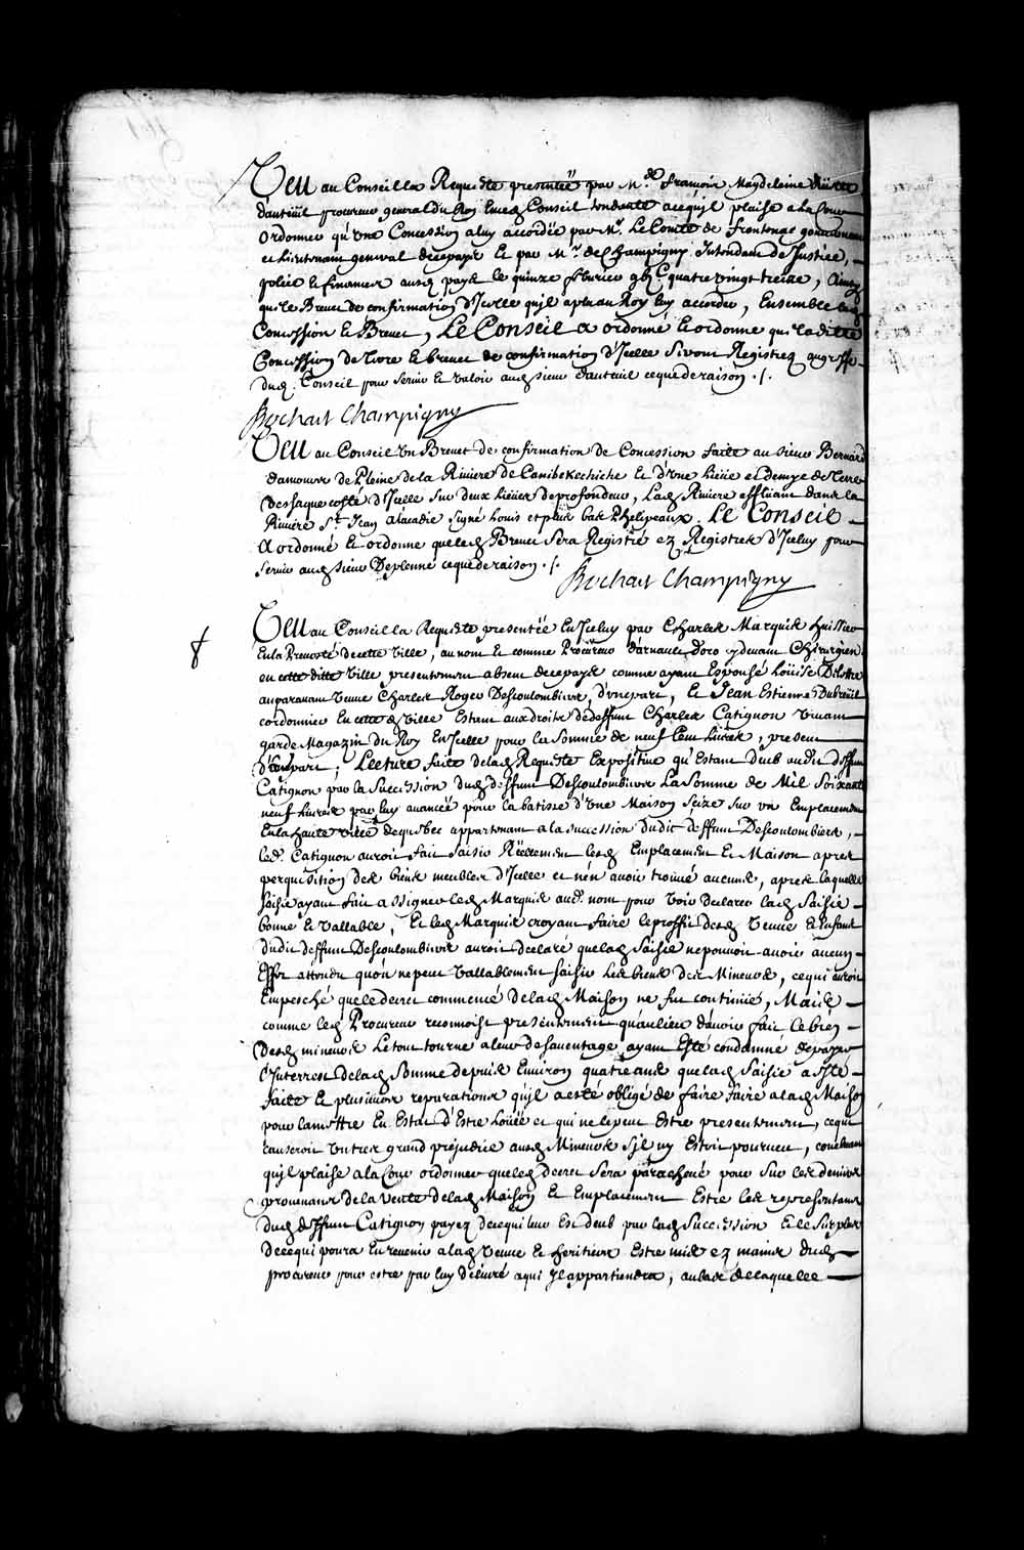 Veu au Conseil la Requeste presentée par Mre. francois Magdeleine Ruette
dauteüil procureur general du Roy en ced. Conseil tendante acequ'jl plaise a la Cour
ordonner qu'une Concession a luy accordée par Mr. Le Comte de frontenac gouverneur
et Lieutenant general decepays et par Mr. de Champigny Intendant de Justice,
police et finances aud. pays le quinze febvrier gbjC quatre vingt treize, Ainsy
que le Brevet de confirmation d'Icelle qu'jl aplu au Roy luy accorder, Ensemble
Concession et Brevet, Le Conseil a ordonné et ordonne que ladite
Concession de terre et brevet de confirmation d'Icelle seront Registrez au greffe
dud. Conseil pour servir et valoir aud. sieur dauteuil ceque de raison ./.
Bochart Champigny
Veu au Conseil un Brevet de confirmation de Concession faite au sieur Bernard
damours de Pleine de la Riviere de Canibekechiche et d'une Lieüe et demye de Terre
Dechaque costé d'Icelle sur deux Lieües de profondeur, Lad. Riviere affluant dans la
Riviere St. Jean alacadie signé Louis et plus bas Phelipeaux. Le Conseil
A ordonné et ordonne que led. Brevet sera Registré ez Registres d'Iceluy pour
servir aud. sieur Depleine ceque de raison ./.
Bochart Champigny
Veu au Conseil la Requeste presentée En Iceluy par Charles Marquis huissier
En la Prevosté de cette Ville, au nom et comme Procureur d'arnault Doro cydevant Chirurgien
en cette ditte Ville presentement absent decepays comme ayant Espousé Loüise
auparavant veuve Charles Roger Descoulombiers, d'une part, Et Jean Estienne Dubreüil
cordonnier En cette d. Ville Estant aux droits de deffunt Charles Catignon vivant
garde Magazin du Roy En Icelle pour la somme de neuf Cent Livres, present
d'autre part; Lecture faite de lad. Requeste Expositive qu'Estant deub audit deffunt
Catignon par la succession dud. deffunt Descoulombiers La somme de Mil soixante
neuf livres par luy avancée pour la batisse d'une Maison seize sur un Emplacement
En la haute ville de quebec appartenant a la succession dudit deffunt Descoulombiers,
led. Catignon auroit fait saisir Réellement lesd. Emplacement et Maison apres
perquisition des biens meubles d'Icelle et n'en avoir trouvé aucuns, apres laquelle
saisie ayant fait assigner led. Marquis aud. nom pour voir declarer lad. saisie
bonne et vallable, Et led. Marquis croyant faire le proffit desd. veuve et Enfans
dudit deffunt Descoulombiers auroit declaré que lad. saisie ne pouvoit avoir aucun
Effet attendu qu'on ne peut vallablement saisir les biens des Mineurs, ce qui auroit
Empesché que le decret commencé de lad. Maison ne fut continüé, Mais
comme led. Procureur reconnoist presentement qu'aulieu d'avoir fait le bien
desd. mineurs le tout tourne a leur desavantage ayant Esté condamné de payer
l'Interrest de lad. somme depuis Environ quatre ans que lad. saisie a esté
faite et plusieurs reparations qu'jl a esté obligé de faire faire a lad. Maison
pour la mettre En Estat d'Estre Loüée et qui ne le peut Estre presentement, ce qui
causeroit un tres grand préjudice ausd. Mineurs s'jl n'y Estoit pourveu, concluant
qu'jl plaise a la Cour ordonner que led. decret sera parachevé pour sur les deniers
provenans de la vente de lad. Maison et Emplacement Estre les representans
dud. deffunt Catignon payez de ce qui leur Est deub par lad. succession et le surplus
De ce qui poura En revenir a lad. veuve et heritiers Estre mis ez mains dud.
procureur pour estre par luy délivré a qui Jl appartiendra, au bas de laquelle